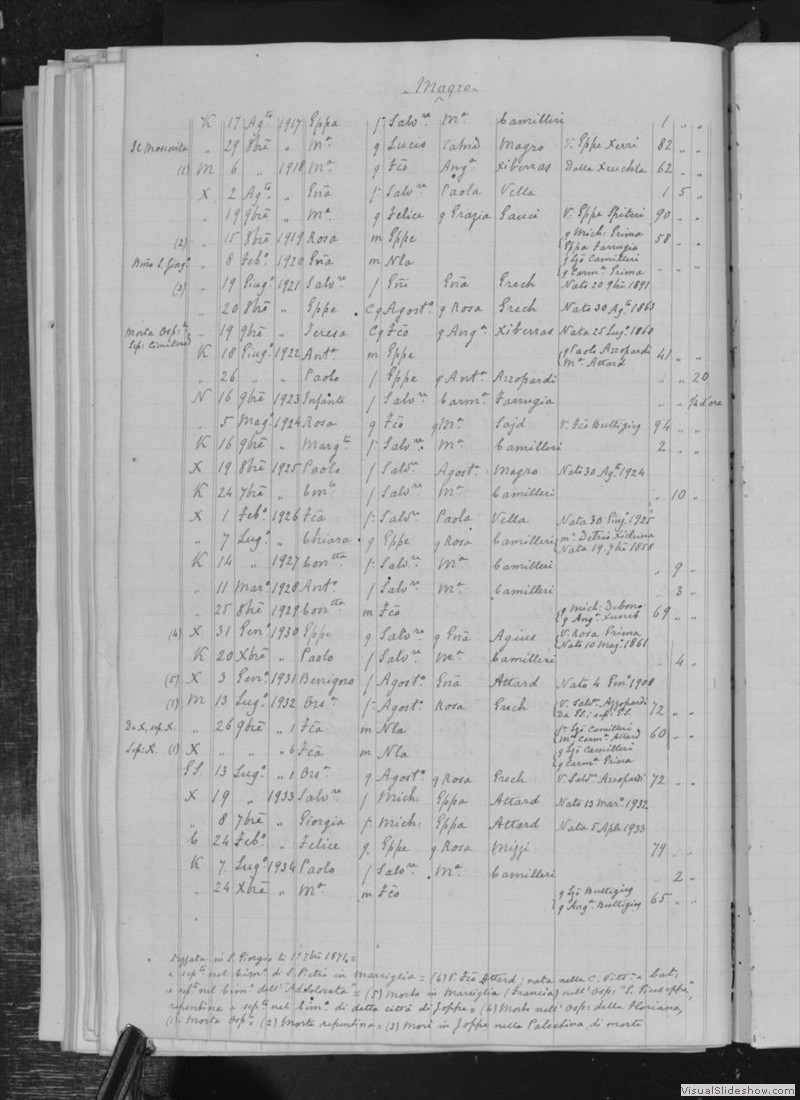 Magro
K 17 Ag.to 1917 Gppa f. Salv.re M.a Camilleri 1 " "
" 29 8bre " M.a g Lucio Magro V. Gppe Xerri 82 " "
(1) M 6 " 1918 M.a g Fco Ang.a Xiberras Dalla Xeuchia 62 " "
X 2 Ag.to " f. Salv.re Paola Vella 1 5 "
" 19 9bre " M.a g Felice g Grazia Gauci V. Gppe Spiteri 90 " "
(2) " 15 8bre 1919 Rosa m Gppe g Mich: Prima Gppa Farrugia 58 " "
" 8 Feb.o 1920 m Nla g Gjo Camilleri g Carm.a Prima " " "
(3) " 19 Giug.o 1921 Salv.re f Grech Nato 20 9bre 1891
" 20 8bre " Gppe C g Agost.o g Rosa Grech Nato 30 Ag.to 1863
Morta Osp.le " 19 9bre " Teresa C g Fco g Ang.a Xiberras Nata 25 Lug.o 1860
K 18 Giug.o 1922 Ant.a m Gppe g Paolo Azzopardi M.a Attard 41 " "
" 26 " " Paolo f Gppe g Ant.a Azzopardi " " 20
N 16 9bre 1923 Infante f Salv.re Carm.a Farrugia " " ¼ d'ora
" 5 Mag.o 1924 Rosa g Fco g M.a Sajd V. Fco Buttigieg 94 " "
K 16 9bre " Marg.ta f. Salv.re M.a Camilleri 2 " "
X 19 8bre 1925 Paolo f Salv.re Agost.a Magro Nato 30 Ag.to 1924
K 24 7bre " f Salv.re M.a Camilleri " 10 "
X 1 Feb.o 1926 Fca f. Salv.re Paola Vella Nata 30 Giug.o 1925
" 7 Lug.o " Chiara g Gppe g Rosa Camilleri Nata 19 7bre 1858
K 14 " 1927 Con.tta f. Salv.re M.a Camilleri " 9 "
" 11 Mar.o 1928 Ant.o f Salv.re M.a Camilleri " 3 "
" 25 8bre 1929 Con.tta m Fco g Mich: Debono g Ang.a Xuereb 69 " "
(4) X 31 Gen.o 1930 Gppe g Salv.re g Agius V. Rosa Prima Nato 10 Mag.o 1861
K 20 Xbre " Paolo f Salv.re M.a Camilleri " 4 "
(5) X 3 Gen.o 1931 Benigno f Agost.o Attard Nato 4 Gen.o 1908
(1) M 13 Lug.o 1932 Ors.a f. Agost.o Rosa Grech V. Salv.re Azzopardi 72 " "
Da X, sep. X. " 26 9bre " Fca m Nla f. Gjo Camilleri M.a Carm.a Attard 60 " "
Sep: X. (1) X " " " 6 Fca m Nla g Gjo Camilleri g Carm.a Prima
GS. 13 Lug.o " Ors.a g Agost.o g Rosa Grech V. Salv.re Azzopardi 72 " "
X 19 " 1933 Salv.re f Mich: Gppa Attard Nato 13 Mar.o 1932
" 8 7bre " Giorgia f. Mich: Gppa Attard Nata 5 Aple 1933
C 24 Feb.o " Felice g. Gppe g Rosa Mizzi 79 " "
K 7 Lug.o 1934 Paolo f Salv.re M.a Camilleri " 2 "
" 24 Xbre " M.a m Fco g Gjo Buttigieg g Ang.a Buttigieg 65 " "
in S. Giorgio li 1° 7bre 1874 =
e sep.to nel Cim.o di S. Pietro in Marsiglia = (6) V. Fco Attard; nata nella C. Vitt.a e bat.
e sep.to nel Cim.o dell' "Addolorata" = (5) Morto in Marsiglia (Francia) nell' Osp:
repentina e sep.to nel Cim.o di detta città di Joppe = (4) Morto nell' Osp: della Floriana,
(1) Morta Osp.le (2) Morte repentina = (3) Morì in Joppe nella Palestina di morte
VisualSlideshow.com